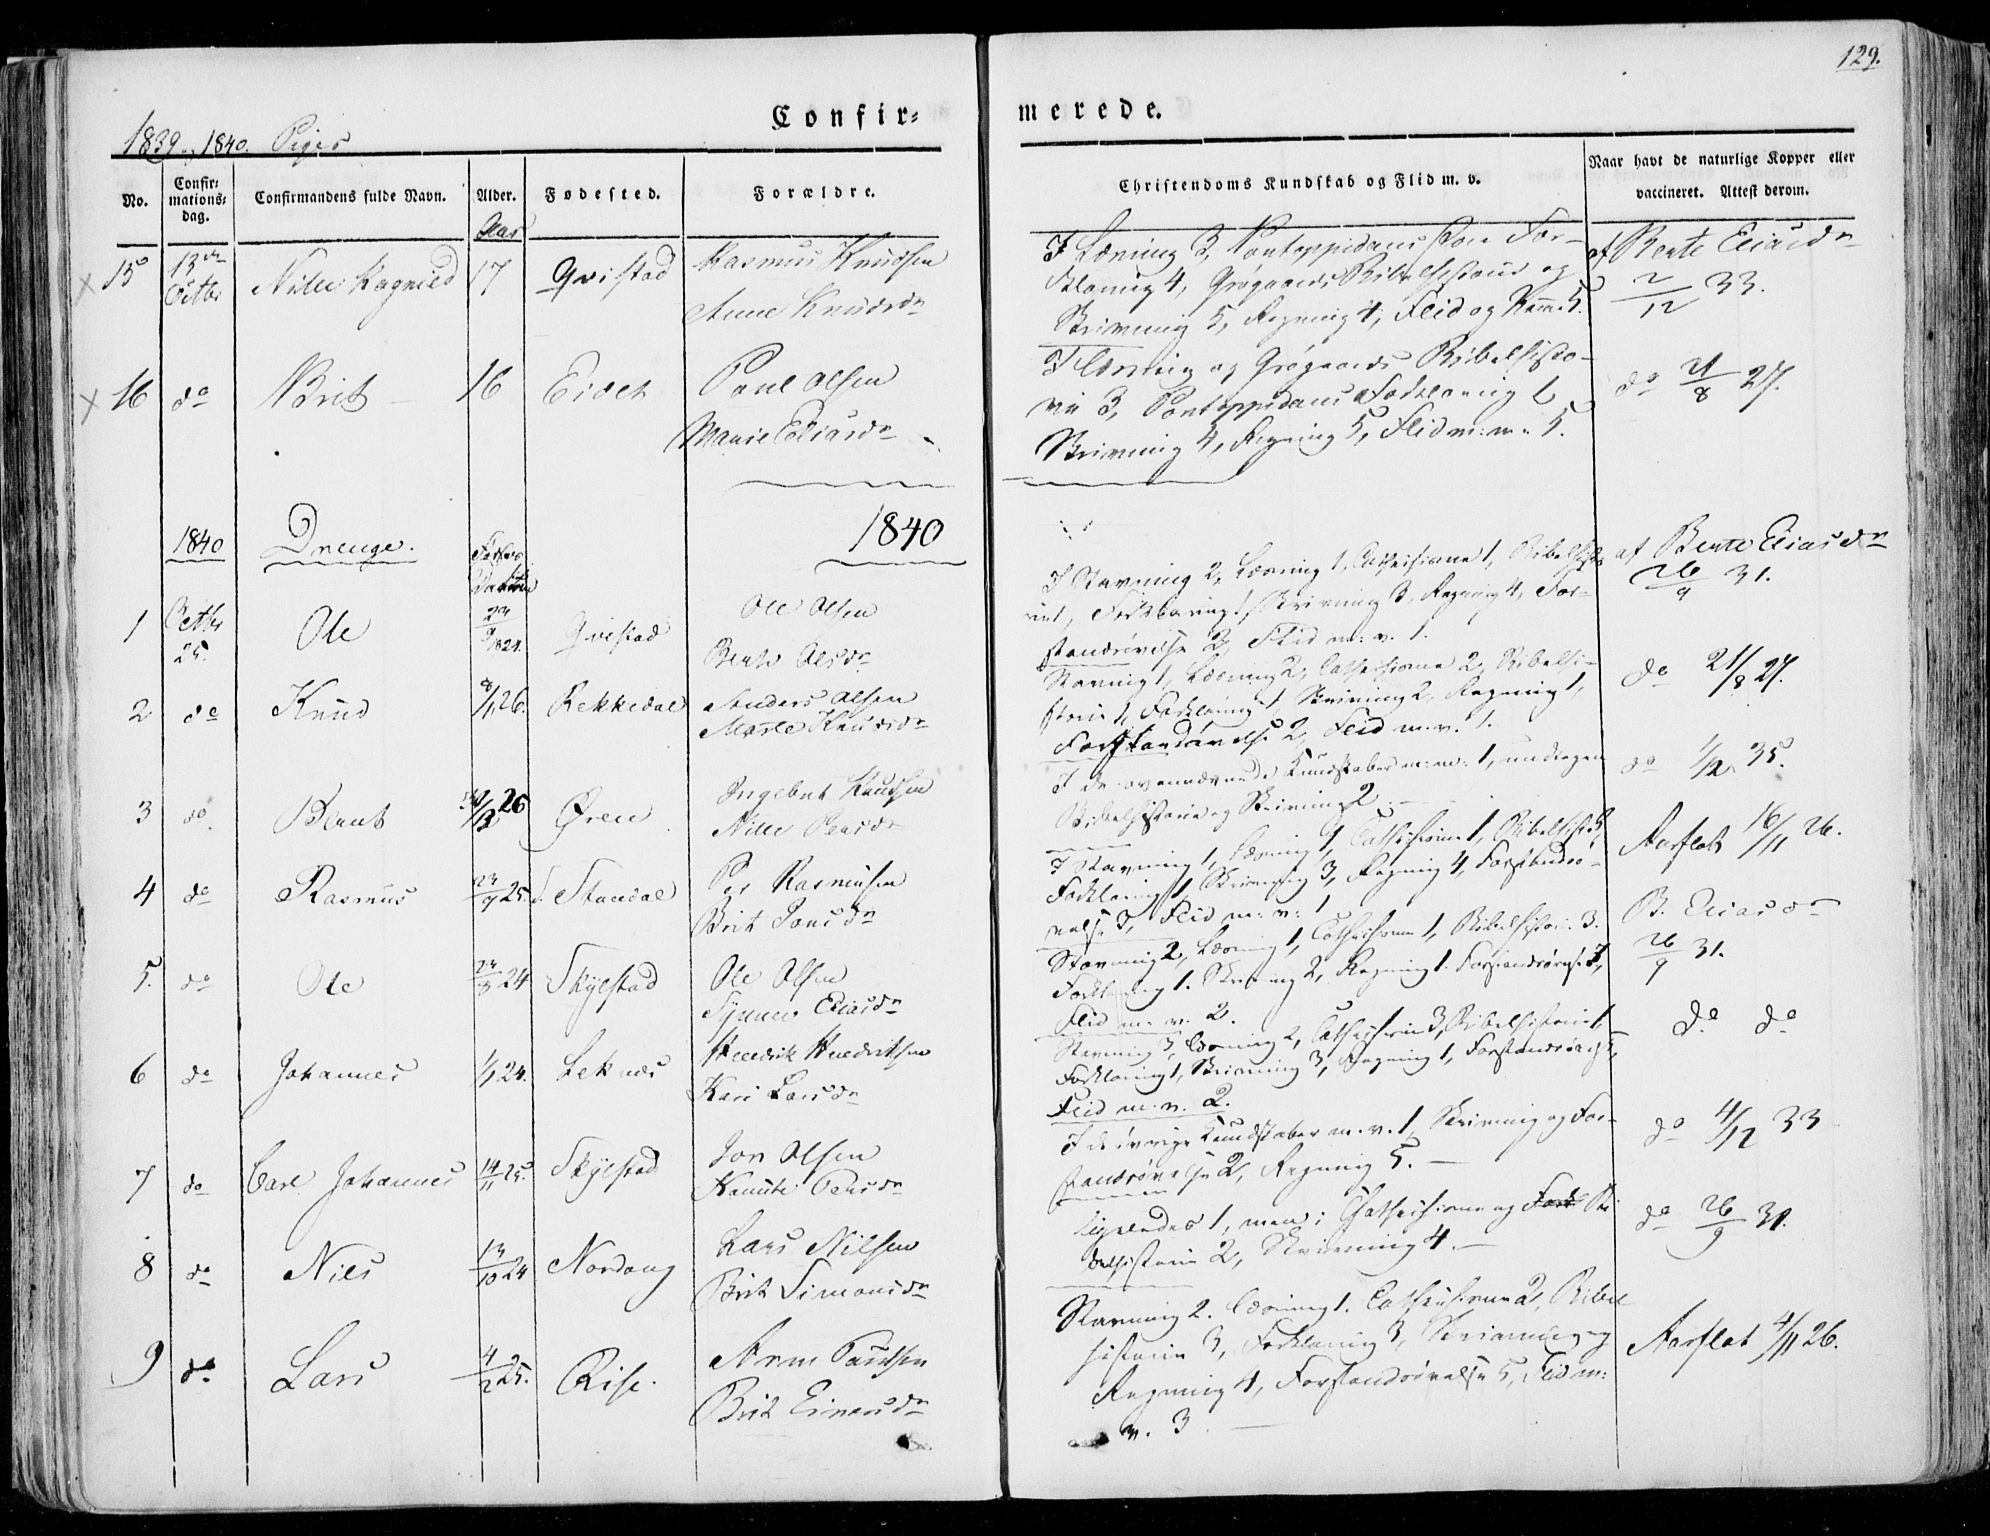 129.
Confir= merede.
1839 - 1840. Piger
No. Confir= mations= dag. Confirmandens fulde Navn. Alder. Fødested. Forældre. Christendoms Kundskab og Flid m. v. Naar havt de naturlige Kopper eller vaccineret. Attest derom.
Aar
15 13de Octbr Nille Ragnild 17 Qvistad Rasmus Knudsen
Anne Knudsdr
I Læsning 3, Pontoppidans store For-
klaring 4, Grøgaards Bibelhistorie og
Skrivning 5, Regning 4, Flid og 5.
af Bente Eliasdr
2/12 33.
16 do Brit 16 Eidet Paul Olsen
Marie Eliasdr
I Læsning og Grøgaards Bibelhisto-
rie 3, Pontoppidans Forklaring
Skrivning 4, Regning 5, Flid m: m. 5.
do 21/8 27.
1840 Drenge. 1840
1 Octbr 25. Ole 23/9 1824. Qvistad Ole Olsen
Bente Olsdr
I Stavning 2, Læsning 1, Cathechisme 1, Bibelhisto
rie 1, Forklaring 1, Skrivning 3, Regning 4, For-
standsøvelse 2, Flid m: v. 1.
af Bente Eliasdr
26/9 31.
2 do Knud 8/1 26. Rekkedal Anders Olsen
Marte Knudsdr
Stavning 1, Læsning 2, Cathechisme 2, Bibelhi-
storie 1, Forklaring 1, Skrivning 2, Regning 1,
Forstandsøvelse 2, Flid m. v. 1.
do 21/8 27.
3 do Bernt 26 Øren Ingebret Knudsen
Nille Persdr
I de ovennævnede Kundskaber m: m: 1, undtagen
Bibelhistorie og Skrivning 2.
do 1/12 35.
4 do Rasmus 23/9 25. Standal Per Rasmusen
Brit Jonsdr
I Stavning 1, Læsning 1, Cathechisme 1, Bibelhist.
Forklaring 1, Skrivning 3, Regning 4, Forstandsø-
velse 3, Flid m: v: 1
Aarflot 16/11 26.
5. do Ole 23/8 24 Skylstad Ole Olsen
Synnev Eliasdr
Stavning 2, Læsning 1, Cathechisme 1, Bibelhistorie 3.
Forklaring 1. Skrivning 2, Regning 1. Forstandsøvelse
Flid m. v. 2.
B. Eliasdr
26/9 31.
6 do Johannes 1/1 24. Leknes Hendrik Hendriksen
Kari Larsdr
Stavning 3, Læsning 2, Cathechisme 3, Bibelhistorie 1,
Forklaring 1, Skrivning 3, Regning 1, Forstandsøvelse
Flid m. v. 2.
do do
7 do Carl Johannes 14/11 25. Skylstad Jon Olsen
Kanute Persdr
I de øvrige Kundskaber m. v. 1, Skrivning og For-
standsøvelse 2, Regning 5.
do 4/12 33
8 do Niels 13/10 24 Nordang Lars Nilsen
Brit Simonsdr
Ligeledes 1, men i Cathechisme og Bi
belhistorie 2, Skrivning 4.
do 26/9 31.
9 do Lars 4/2 25. Rise. Arne Paulsen
Brit Einersdr
Stavning 2. Læsning 1. Cathechisme 2, Bibel
historie 3, Forklaring 3, Skrivning og
Regning 4, Forstandsøvelse 5, Flid m:
v. 3.
Aarflot 4/11 26.